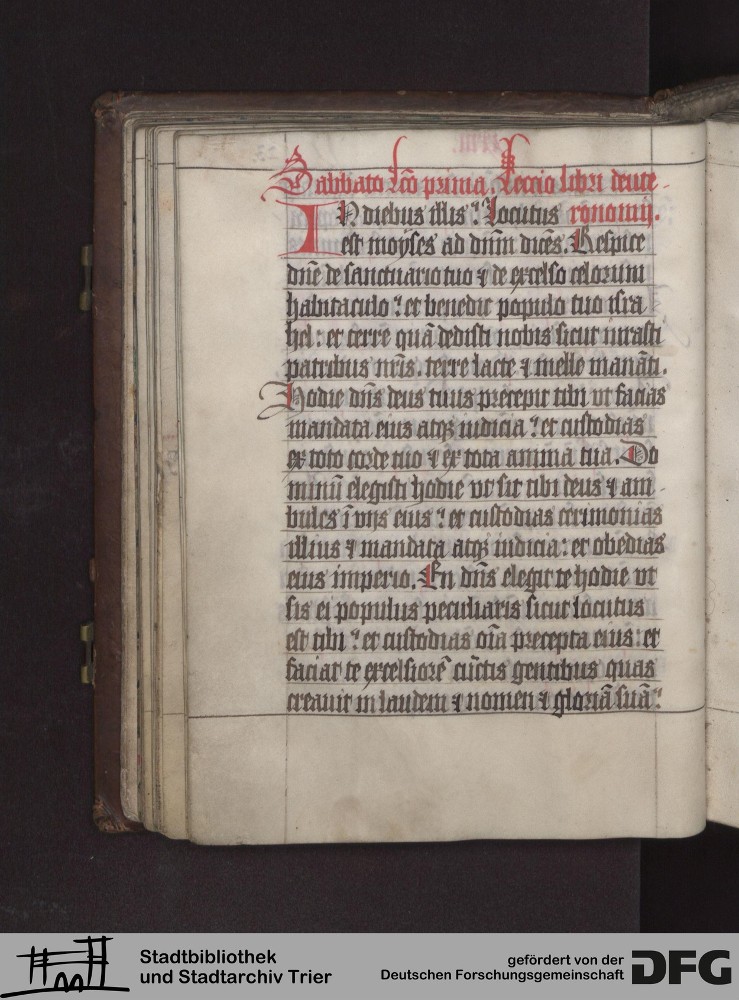 Sabbato lcō prima. Leccio libri deute-
IN diebus illis : locutus ronomij.
est moyses ad dnm dicēs. Respice
dnē de sanctuario tuo ⁊ de excelso celorum
habitaculo : et benedic populo tuo isra
hel : et terre quā dedisti nobis sicut iurasti
patribus nrīs. terre lacte ⁊ melle manāti.
Hodie dns̄ deus tuus precepit tibi vt facias
mandata eius atqꝫ iudicia : et custodias
ex toto corde tuo ⁊ ex tota anima tua. Do
minū elegisti hodie vt sit tibi deus ⁊ am-
bules ī vijs eius : et custodias cerimonias
illius ⁊ mandata atqꝫ iudicia : et obedias
eius imperio. En dns̄ elegit te hodie vt
sis ei populus peculiaris sicut locutus
est tibi : et custodias oīa precepta eius : et
faciat te excelsiorē cūctis gentibus quas
creauit in laudem ⁊ nomen ⁊ gloriā suā :
Stadtbibliothek
und Stadtarchiv Trier
gefördert von der
Deutschen Forschungsgemeinschaft
DFG